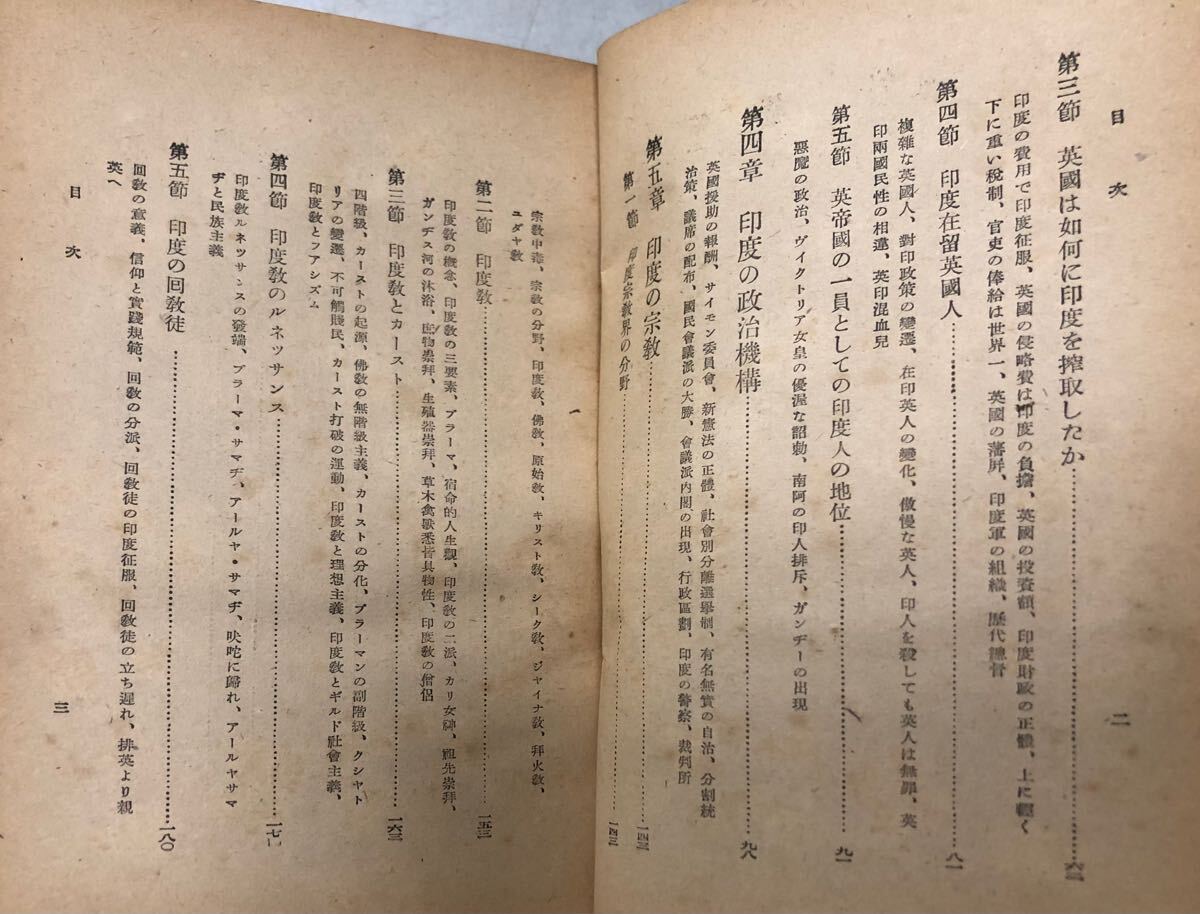 目次
二
第三節　英國は如何に印度を搾取したか………六三
印度の費用で印度征服、英國の侵略費は印度の負擔、英國の投資額、印度財政の正體、上に輕く
下に重い税制、官吏の俸給は世界一、英國の藩屛、印度軍の組織、歷代總督
第四節　印度在留英國人………八一
複雜な英國人、對印政策の變遷、在印英人の變化、傲慢な英人、印人を殺しても英人は無罪、英
印兩國民性の相違、英印混血兒
第五節　英帝國の一員としての印度人の地位………九一
惡魔の政治、ヴイクトリア女皇の優渥な詔勅、南阿の印人排斥、ガンヂーの出現
第四章　印度の政治機構………九八
英國援助の報酬、サイモン委員會、新憲法の正體、社會別分離選擧制、有名無實の自治、分割統
治策、議席の配布、國民會議派の大勝、會議派内閣の出現、行政區劃、印度の警察、裁判所
第五章　印度の宗敎………一四三
第一節　印度宗敎界の分野………一四三
宗敎中毒、宗敎の分野、印度敎、佛敎、原始敎、キリスト敎、シーク敎、ジヤイナ敎、拜火敎、
ユダヤ敎
第二節　印度敎………一五三
印度敎の槪念、印度敎の三要素、ブラーマ、宿命的人生觀、印度敎の二派、カリ女神、祖先崇拜、
ガンヂス河の沐浴、庶物崇拜、生殖器崇拜、草木禽獸悉皆具物性、印度敎の僧侶
第三節　印度敎とカースト………一六三
四階級、カーストの起源、佛敎の無階級主義、カーストの分化、ブラーマンの副階級、クシヤト
リアの變遷、不可觸賤民、カースト打破の運動、印度敎と理想主義、印度敎とギルド社會主義、
印度敎とフアシズム
第四節　印度敎のルネツサンス………一七一
印度敎ルネツサンスの發端、ブラーマ・サマヂ、アールヤ・サマヂ、吠陀に歸れ、アールヤサマ
ヂと民族主義
第五節　印度の回敎徒………一八〇
回敎の意義、信仰と實踐規範、回敎の分派、回敎徒の印度征服、回敎徒の立ち遲れ、排英より親
英へ
目次
三